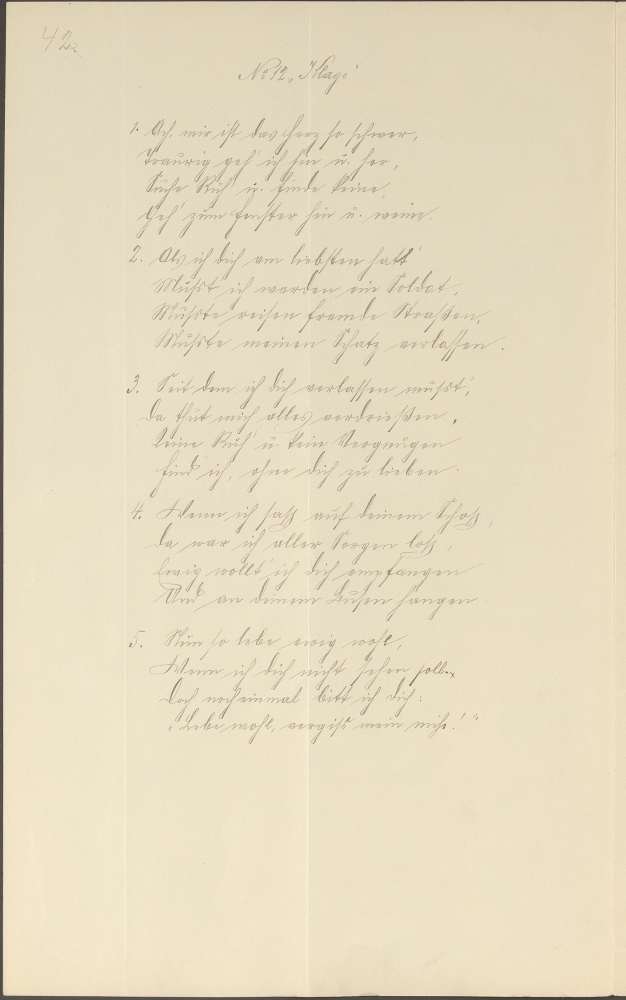 42
No 12 „Klage"
1. Ach, mir ist das Herz so schwer,
Traurig geh' ich hin u. her,
Suche Ruh' u. finde keine,
Geh' zum Fenster hin u. weine.
2. Als ich dich am liebsten hatt'
Mußt' ich werden ein Soldat,
Mußte reisen fremde Straßen,
Mußte meinen Schatz verlassen.
3. Seit dem ich dich verlassen mußt',
da thut mich alles verdrießen,
keine Ruh' u. kein Vergnügen
find' ich, ohne dich zu lieben.
4. Wenn ich saß auf deinem Schoß,
da war ich aller Sorgen loß,
Ewig wollt' ich dich empfangen
Und an deinem Busen hangen
5. Nun so lebe ewig wohl,
Wenn ich dich nicht sehen soll.
Doch noch einmal bitt' ich dich:
„Lebe wohl, vergiß mein nicht!"